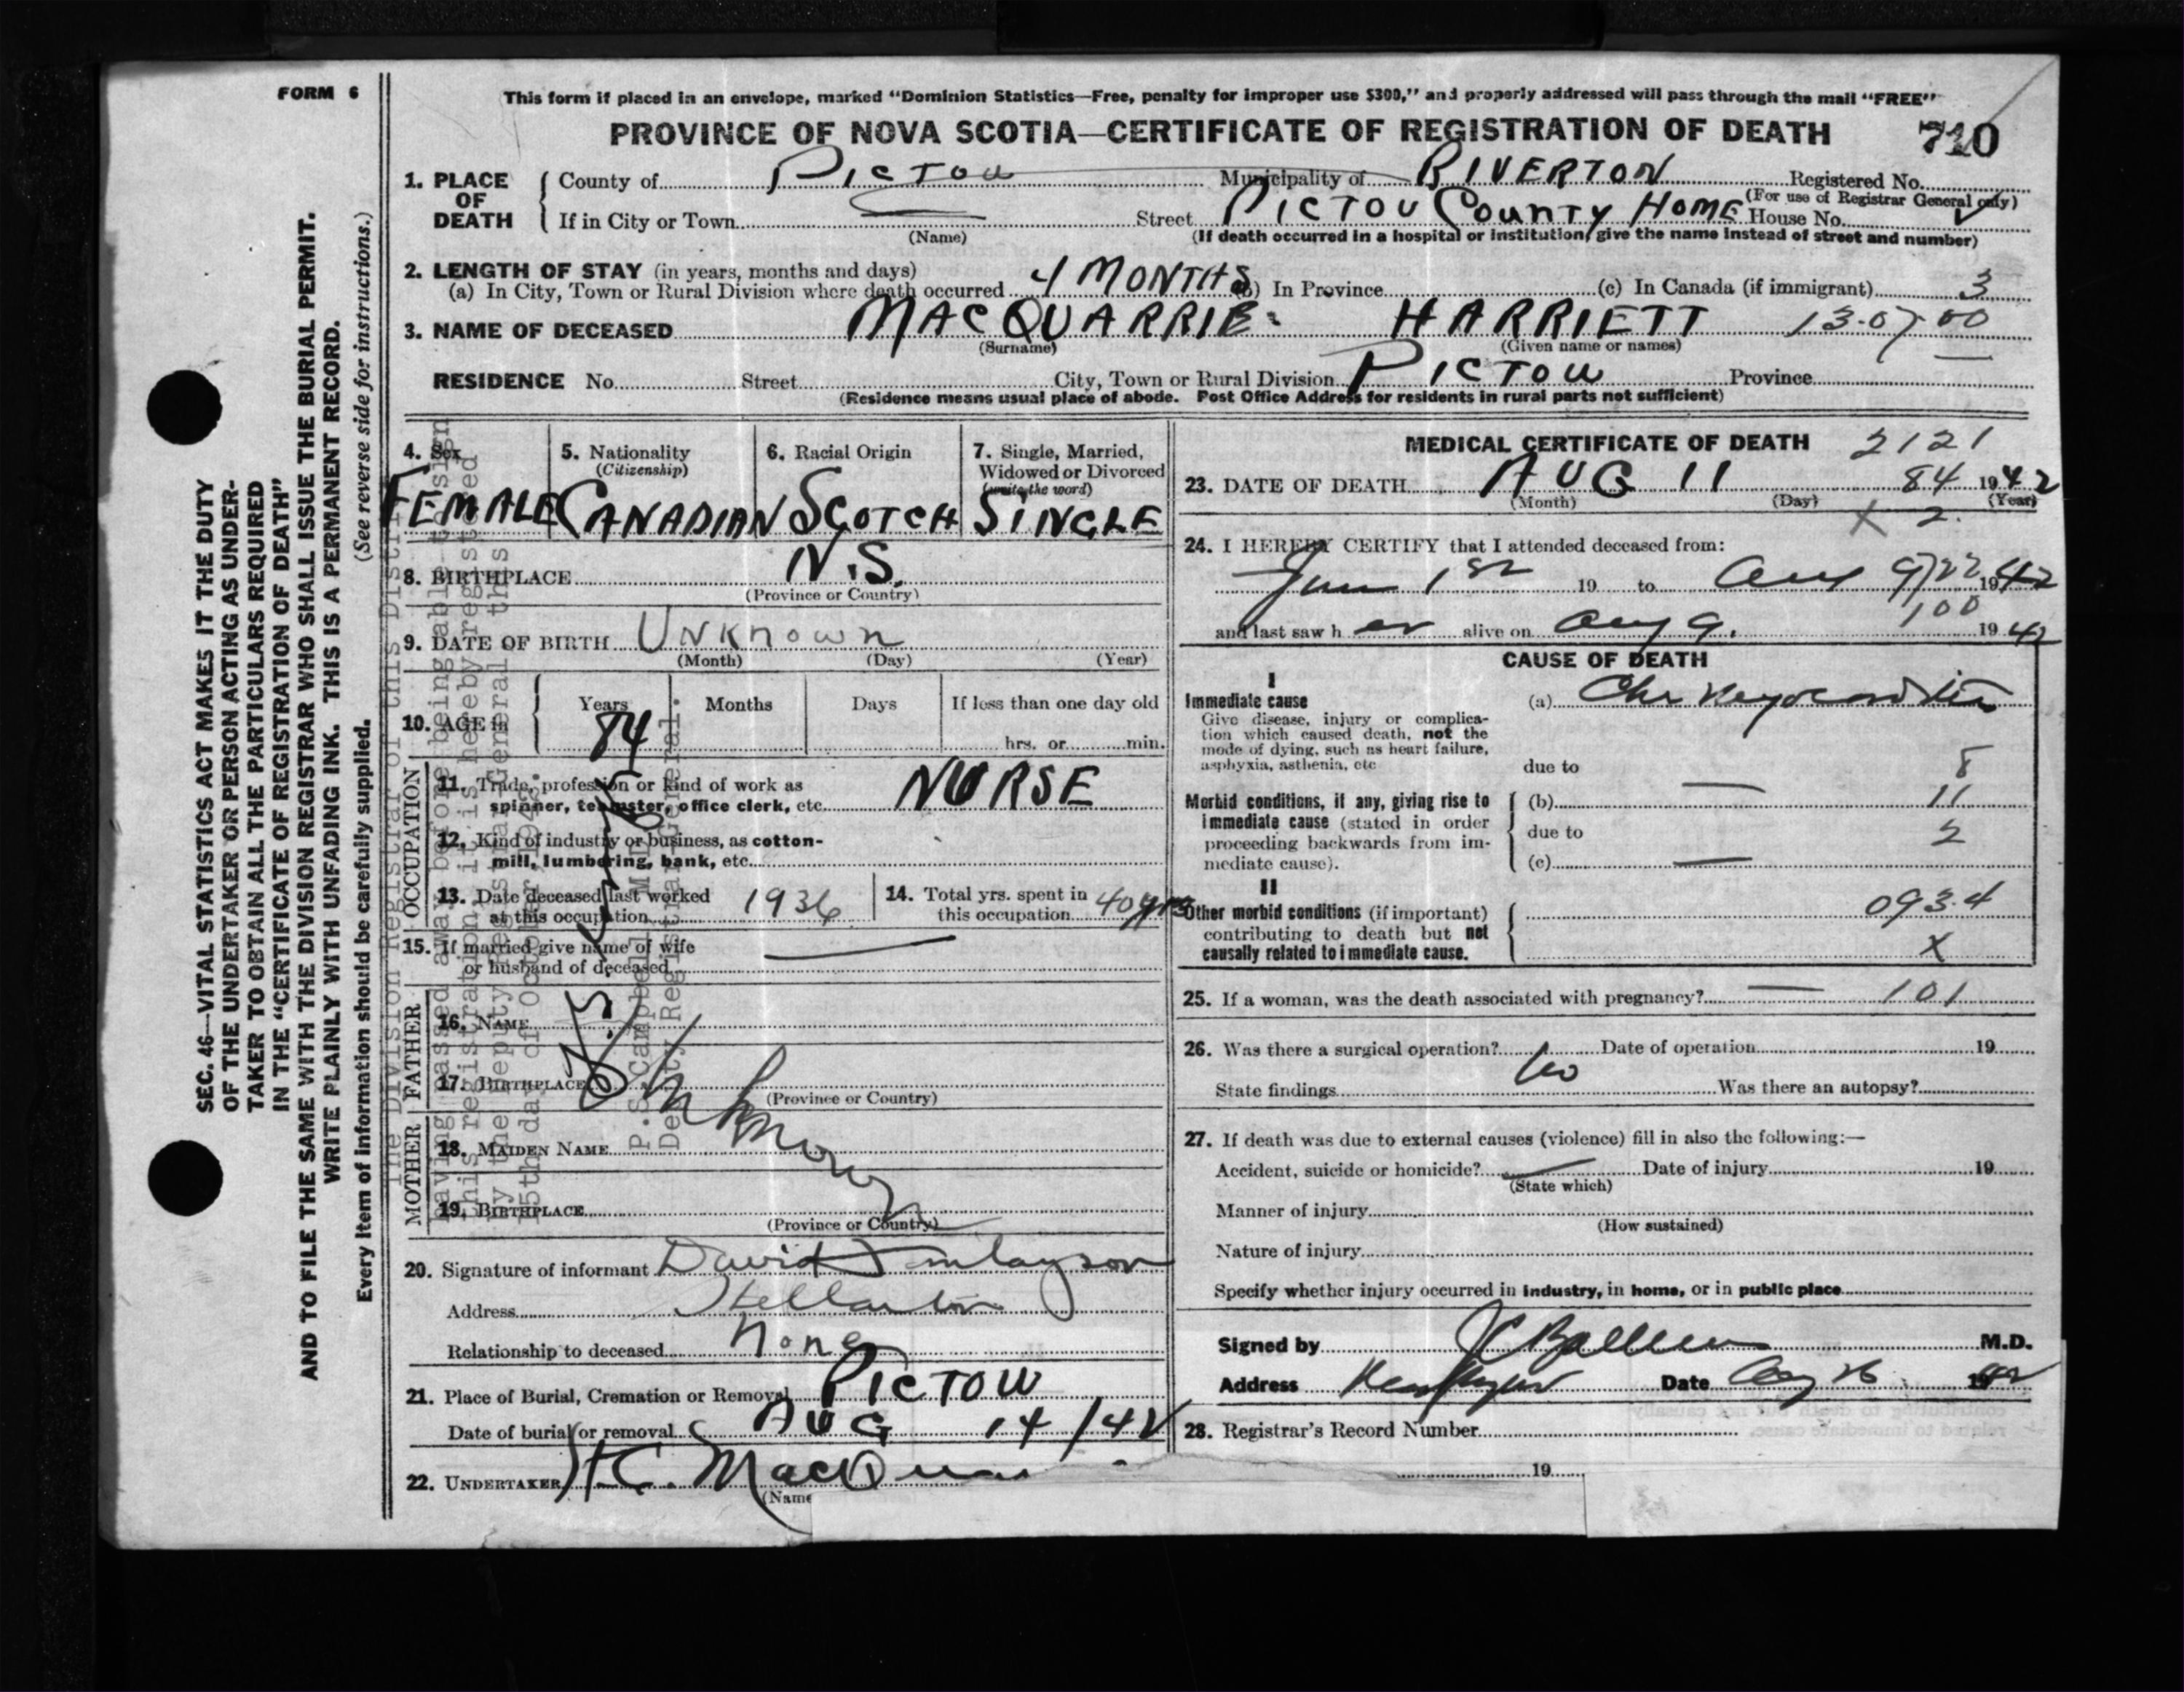 FORM 6
This form if placed in an envelope, marked “Dominion Statistics—Free, penalty for improper use $300,” and properly addressed will pass through the mail “FREE”
PROVINCE OF NOVA SCOTIA—CERTIFICATE OF REGISTRATION OF DEATH 710
1. PLACE OF DEATH
County of PICTOU Municipality of RIVERTON Registered No.
(For use of Registrar General only)
If in City or Town Street PICTOU COUNTY HOME House No.
(Name) (If death occurred in a hospital or institution, give the name instead of street and number)
2. LENGTH OF STAY (in years, months and days)
(a) In City, Town or Rural Division where death occurred 4 MONTHS (b) In Province (c) In Canada (if immigrant) 3
3. NAME OF DECEASED MACQUARRIE HARRIETT 13-07-00
(Surname) (Given name or names)
RESIDENCE No. Street City, Town or Rural Division PICTOU Province
(Residence means usual place of abode. Post Office Address for residents in rural parts not sufficient)
4. Sex 5. Nationality (Citizenship) 6. Racial Origin 7. Single, Married, Widowed or Divorced (write the word)
FEMALE CANADIAN SCOTCH SINGLE
8. BIRTHPLACE N.S.
(Province or Country)
9. DATE OF BIRTH Unknown
(Month) (Day) (Year)
10. AGE Years Months Days If less than one day old
84 hrs. or min.
OCCUPATION
11. Trade, profession or kind of work as spinner, teamster, office clerk, etc. NURSE
12. Kind of industry or business, as cotton-mill, lumbering, bank, etc.
13. Date deceased last worked at this occupation 1936
14. Total yrs. spent in this occupation 40 yrs
15. If married give name of wife or husband of deceased
FATHER
16. NAME
17. BIRTHPLACE
(Province or Country)
Unknown
MOTHER
18. MAIDEN NAME
19. BIRTHPLACE
(Province or Country)
20. Signature of informant David Finlayson
Address Stellarton
Relationship to deceased None
21. Place of Burial, Cremation or Removal PICTOU
Date of burial or removal AUG 14/42
22. UNDERTAKER
(Name
MEDICAL CERTIFICATE OF DEATH 2121
23. DATE OF DEATH AUG 11 84 1942
(Month) (Day) (Year)
X 2
24. I HEREBY CERTIFY that I attended deceased from:
June 1st 19 to Aug 9 1942
100
and last saw her alive on Aug 9, 1942
CAUSE OF DEATH
I
Immediate cause
Give disease, injury or complication which caused death, not the mode of dying, such as heart failure, asphyxia, asthenia, etc
(a) Chr Myocarditis
due to 8
Morbid conditions, if any, giving rise to immediate cause (stated in order proceeding backwards from immediate cause).
(b) — 11
due to 2
(c) —
II
Other morbid conditions (if important) contributing to death but not causally related to immediate cause.
093.4
X
25. If a woman, was the death associated with pregnancy? — 101
26. Was there a surgical operation? No Date of operation 19
State findings Was there an autopsy?
27. If death was due to external causes (violence) fill in also the following:—
Accident, suicide or homicide? — Date of injury 19
(State which)
Manner of injury
(How sustained)
Nature of injury
Specify whether injury occurred in industry, in home, or in public place
Signed by M.D.
Address Date Aug 26 1942
28. Registrar's Record Number
19
SEC. 46—VITAL STATISTICS ACT MAKES IT THE DUTY
OF THE UNDERTAKER OR PERSON ACTING AS UNDER-
TAKER TO OBTAIN ALL THE PARTICULARS REQUIRED
IN THE “CERTIFICATE OF REGISTRATION OF DEATH”
AND TO FILE THE SAME WITH THE DIVISION REGISTRAR WHO SHALL ISSUE THE BURIAL PERMIT.
WRITE PLAINLY WITH UNFADING INK. THIS IS A PERMANENT RECORD.
Every item of information should be carefully supplied. (See reverse side for instructions.)
The Division Registrar of this District
having passed away before being able to sign
this registration it is hereby registered
by the Deputy Registrar General this
15th day of October, 194
P. S. Campbell M.D.
Deputy Registrar General.